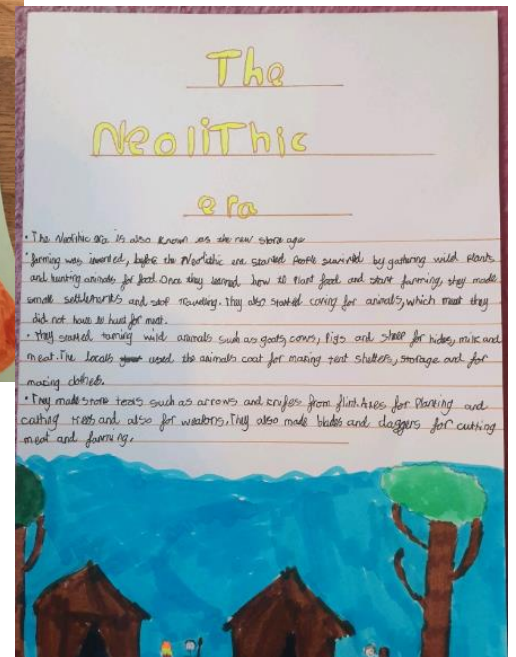 The
Neolithic
era
• The Neolithic era is also known as the new stone age
• farming was invented, before the Neolithic era started people survived by gathering wild plants
and hunting animals for food. Once they learned how to plant food and start farming, they made
small settlements and stop traveling. They also started caring for animals, which meat they
did not have to hunt for meat.
• They started taming wild animals such as goats, cows, pigs and for hides, milk and
meat. The locals used the animals coat for making tent shelters, storage and for
making clothes.
• They made stone tools such as arrows and knifes from flint. Axes for Planting and
cutting trees and also for weapons. They also made blades and daggers for cutting
meat and farming.